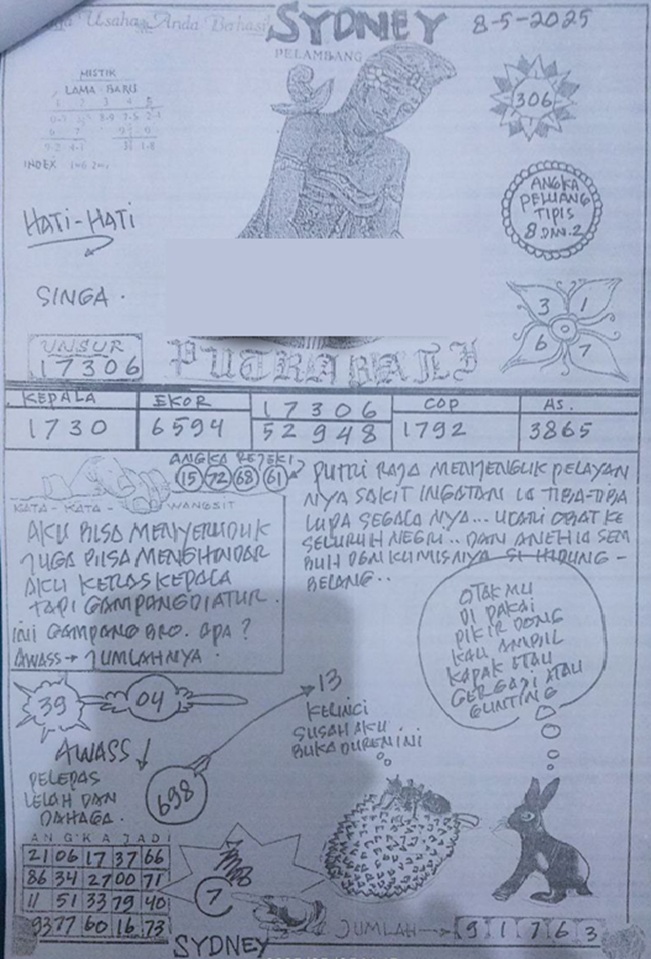 Usaha Anda Berhasil
SYDNEY
8-5-2025
PELAMBANG
MISTIK
LAMA - BARU
INDEX
306
ANGKA
PELUANG
TIPIS
8 DAN 2
HATI-HATI
SINGA.
3 1
6 7
UNSUR
17306
PUTRA BALI
KEPALA
1730
EKOR
6594
17306
52948
COP
1792
AS.
3865
ANGKA REJEKI
15 72 68 61
KATA - KATA - WANGSIT
AKU BISA MENYERUDUK
JUGA BISA MENGHINDAR
AKU KERAS KEPALA
TAPI GAMPANG DIATUR.
INI GAMPANG BRO. APA?
AWASS → JUMLAHNYA.
PUTRI RAJA MENJENGUK PELAYAN
NYA SAKIT INGATAN IA TIBA-TIBA
LUPA SEGALA NYA... UCARI OBAT KE
SELURUH NEGRI.. DAN ANEH IA SEM
BUH DGN KUMISNYA SI HIDUNG -
BELANG..
OTAK MU
DI PAKAI
PIKIR DONG
KAU AMBIL
KAPAK ATAU
GERGAJI ATAU
GUNTING
39
04
13
KELINCI
SUSAH AKU
BUKA DUREN INI
AWASS
698
PELEPAS
LELAH DAN
DAHAGA.
ANGKA JADI
21 06 17 37 66
86 34 27 00 71
11 51 33 79 40
93 77 60 16 73
7
SYDNEY
JUMLAH → 9 1 7 6 3